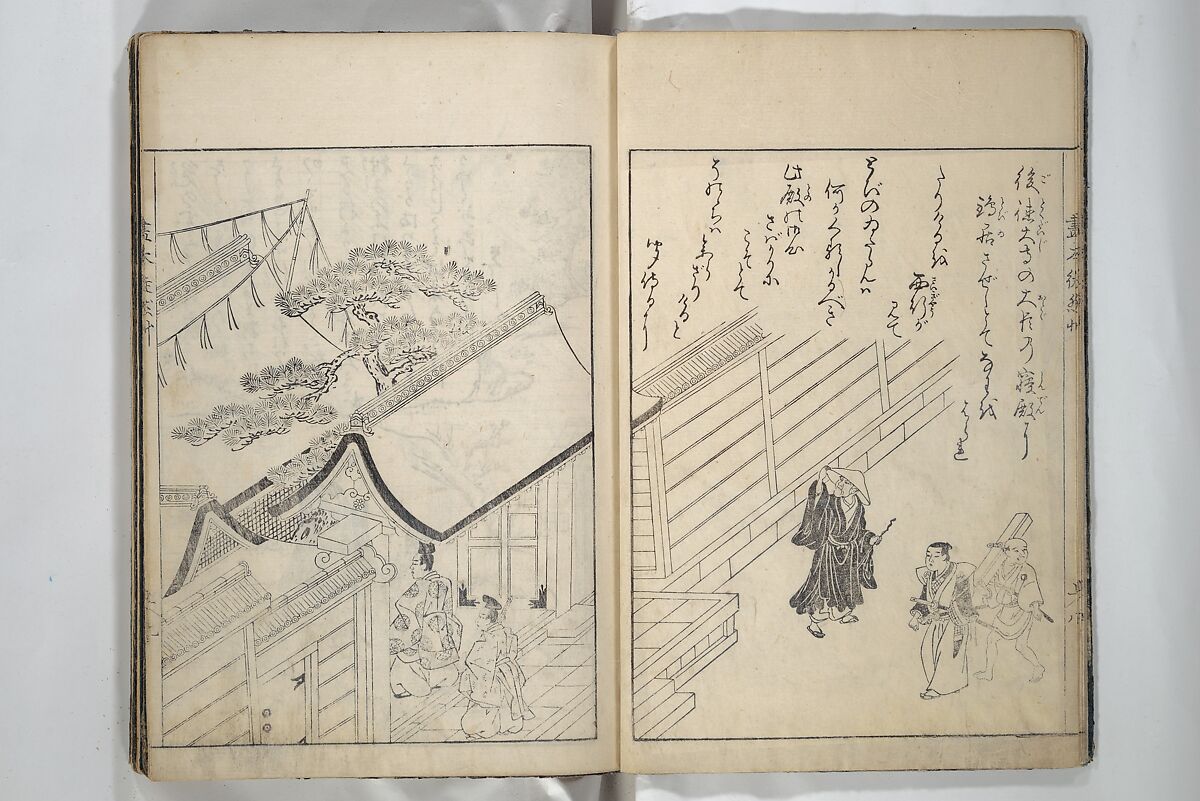 畫本徒然艸
後徳大寺の大臣の寝殿に
鵄居させじとてなわを
はられ
たりけるを
西行が
みて
とびのゐたらんは
何かくるしかるべき
此殿の御心
さばかりに
こそとて
まいらざり
けると
侍り
畫本徒然艸